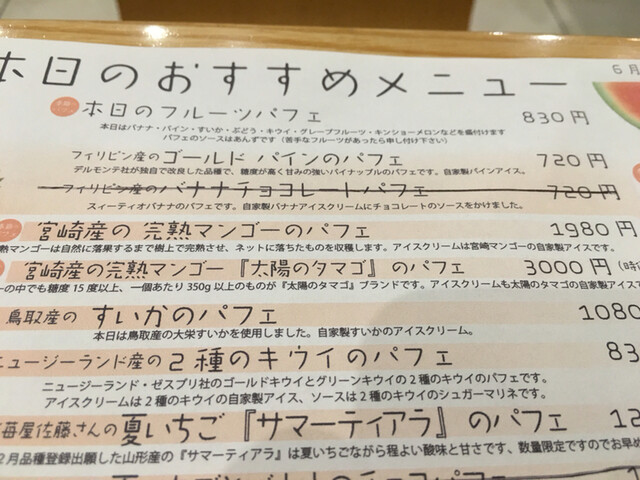 本日のおすすめメニュー 6月
本日のフルーツパフェ 830円
本日はバナナ・パイン・すいか・ぶどう・キウイ・グレープフルーツ・キンショーメロンなどを盛付けます
パフェのソースはあんずです（苦手なフルーツがあったら申し付け下さい）
フィリピン産のゴールド パインのパフェ 720円
デルモンテ社が独自で改良した品種で、糖度が高く甘みの強いパイナップルのパフェです。自家製パインアイス。
フィリピン産のバナナチョコレートパフェ 720円
スィーティオバナナのパフェです。自家製バナナアイスクリームにチョコレートのソースをかけました。
宮崎産の 完熟マンゴーのパフェ 1980円
熟マンゴーは自然に落果するまで樹上で完熟させ、ネットに落ちたものを収穫します。アイスクリームは宮崎マンゴーの自家製アイスです。
宮崎産の完熟マンゴー『太陽のタマゴ』のパフェ 3000円
ーの中でも糖度15度以上、一個あたり350g以上のものが『太陽のタマゴ』ブランドです。アイスクリームも太陽のタマゴの自家製アイス
鳥取産の すいかのパフェ 1080
本日は鳥取産の大栄すいかを使用しました。自家製すいかのアイスクリーム。
ニュージーランド産の 2種のキウイのパフェ 83
ニュージーランド・ゼスプリ社のゴールドキウイとグリーンキウイの2種のキウイのパフェです。
アイスクリームは2種のキウイの自家製アイス、ソースは2種のキウイのシュガーマリネです。
苺屋佐藤さんの夏いちご『サマーティアラ』のパフェ 12
2月品種登録出願した山形産の『サマーティアラ』は夏いちごながら程よい酸味と甘さです、数量限定ですのでお早め